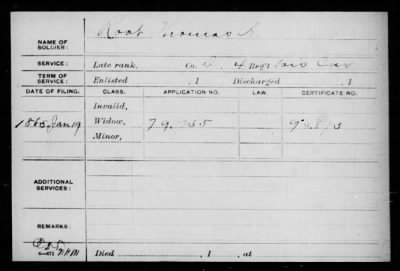 NAME OF SOLDIER: Root Thomas A.
SERVICE: Late rank, Co. D, 4 Reg't Iowa Cav
TERM OF SERVICE: Enlisted , 1 Discharged , 1
DATE OF FILING. CLASS. APPLICATION NO. LAW. CERTIFICATE NO.
Invalid,
1865 Jan 19 Widow, 79.755
Minor,
ADDITIONAL SERVICES:
REMARKS:
Died , 1 , at